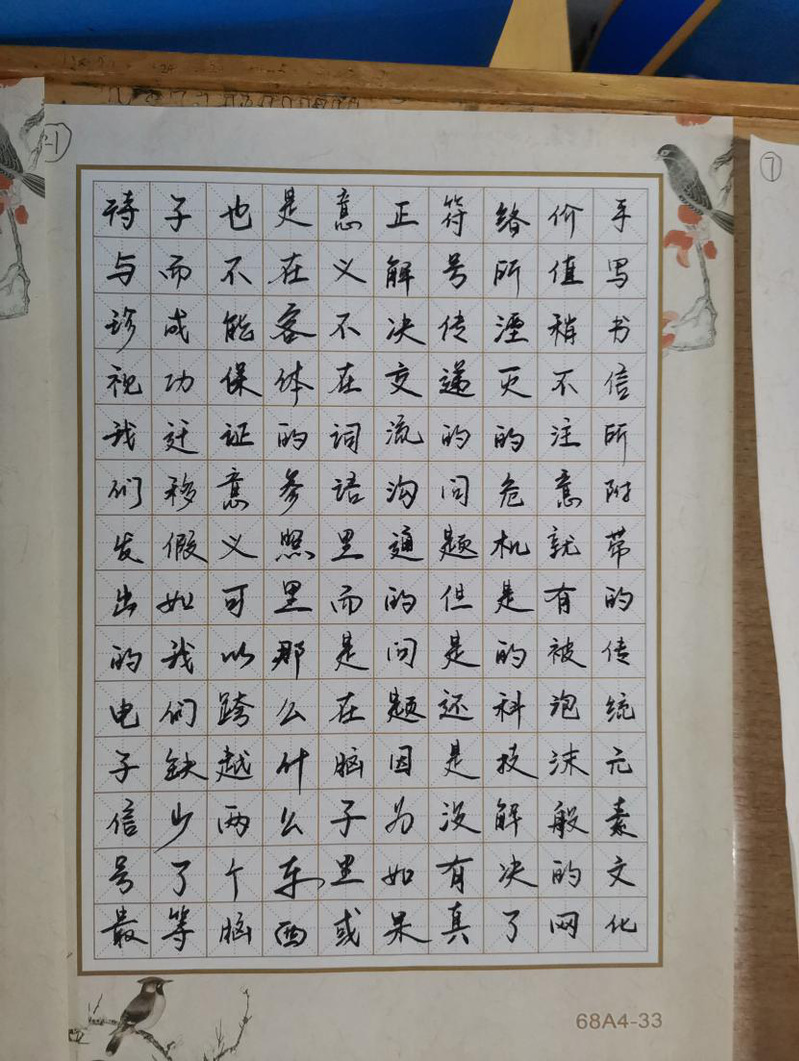 手写书信所附带的传统元素文化
价值稍不注意就有被泡沫般的网
络所湮灭的危机是的科技解决了
符号传递的问题但是还是没有真
正解决交流沟通的问题因为如果
意义不在词语里而是在脑子里或
是在客体的参照里那么什么东西
也不能保证意义可以跨越两个脑
子而成功迁移假如我们缺少了等
待与珍视我们发出的电子信号最
68A4-33
-1
⑦